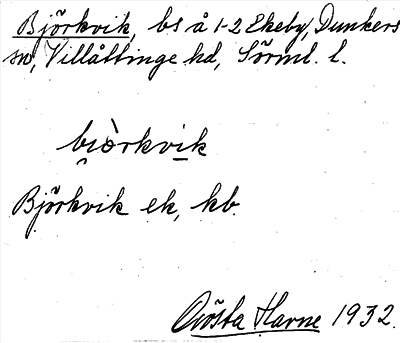 Björkvik, bs å 1-2 Ekeby, Dunkers
sn, Villåttinge hd, Sörml. l.
bi̯ö̀rkvik
Björkvik ek, kb.
Gösta Harne 1932.